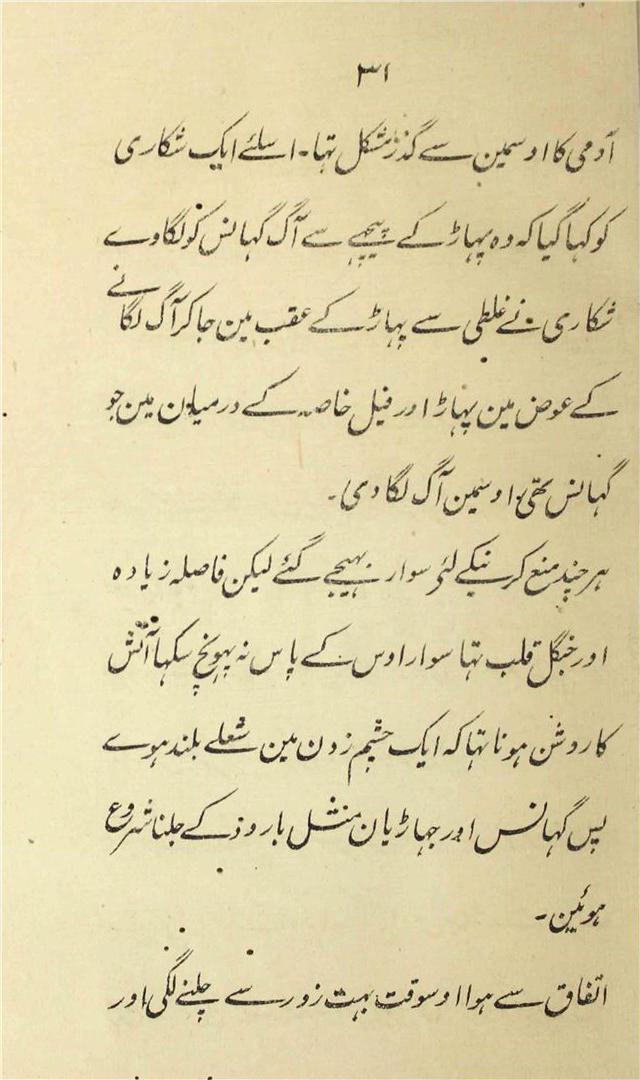 ۳۱
آدمی کا اوسمین سے گذر مشکل تہا۔ اسلئے ایک شکاری
کو کہا گیا کہ وہ پہاڑ کے پیچھے سے آگ گہانس کو لگاوے
شکاری نے غلطی سے پہاڑ کے عقب مین جاکر آگ لگانے
کے عوض مین پہاڑ اور فیل خاصہ کے درمیان مین جو
گہانس تھی اوسمین آگ لگا دی۔
ہر چند منع کرنیکے لئی سوار بہیجے گئے لیکن فاصلہ زیادہ
اور جنگل قلب تہا سوار اوس کے پاس نہ پہونچ سکہا آتش
کا روشن ہونا تہا کہ ایک چشم زدن مین شعلے بلند ہوے
پس گہانس اور جہاڑیان مثل باروذ کے جلنا شروع
ہوئین۔
اتفاق سے ہوا اوسوقت بہت زور سے چلنے لگی اور